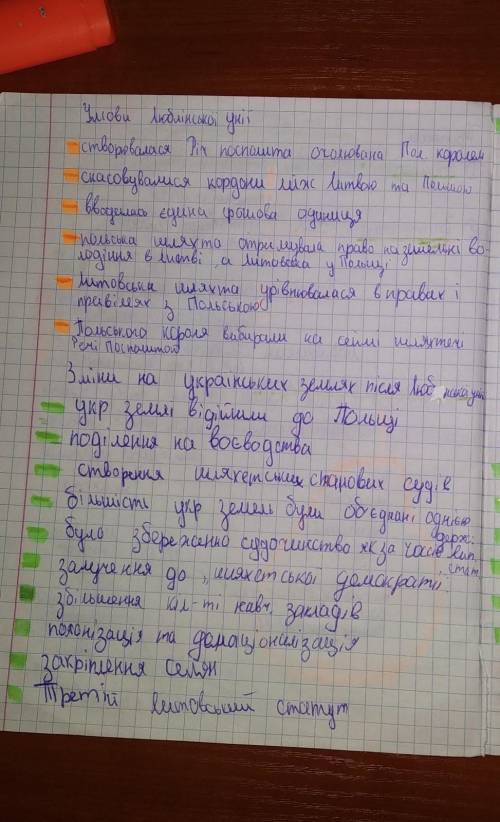 Умови Люблінської унії
створювалася Річ поспашта очолювана Пол королем
скасовувалися кордони між Литвою та Польшою
вводилась єдина грошова одиниця
польська шляхта отримувала право на земельні во-
лодіння в Литві, а Литовська у Польщі
Литовська шляхта урівнювалася в правах і
привілеях з Польською
Польського короля вибирали на сеймі шляхтечі
Речі Поспаштой
Зміни на українських землях після Люб унії
укр землі відійшли до Польщі
поділення на воєводства
створення шляхетських станових судів
більшість укр земель були об'єднані однією
держ.
було збереженно судочинство як за часів лит.
стат.
залучення до "шляхетської демократії"
збільшення кіл-ті навч. закладів
полонізація та домаціоналізація
закріплення селян
Третій литовський статут